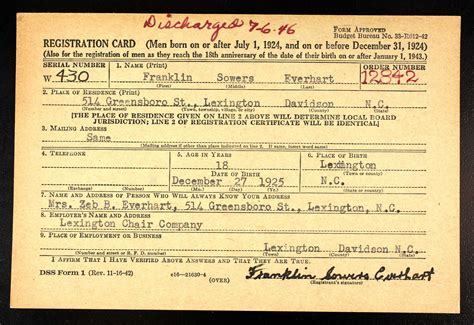 Discharged 7-6-46
FORM APPROVED
Budget Bureau No. 33-R012-42
REGISTRATION CARD (Men born on or after July 1, 1924, and on or before December 31, 1924)
(Also for the registration of men as they reach the 18th anniversary of the date of their birth on or after January 1, 1943.)
SERIAL NUMBER 1. NAME (Print) ORDER NUMBER
W. 430 Franklin Sowers Everhart 12842
(First) (Middle) (Last)
2. PLACE OF RESIDENCE (Print)
514 Greensboro St., Lexington Davidson N.C.
(Number and street) (Town, township, village, or city) (County) (State)
[THE PLACE OF RESIDENCE GIVEN ON LINE 2 ABOVE WILL DETERMINE LOCAL BOARD
JURISDICTION; LINE 2 OF REGISTRATION CERTIFICATE WILL BE IDENTICAL]
3. MAILING ADDRESS
Same
(Mailing address if other than place indicated on line 2. If same, insert word same)
4. TELEPHONE 5. AGE IN YEARS 6. PLACE OF BIRTH
18 Lexington
DATE OF BIRTH (Town or county)
December 27 1925 N.C.
(Exchange) (Number) (Mo.) (Day) (Yr.) (State or country)
7. NAME AND ADDRESS OF PERSON WHO WILL ALWAYS KNOW YOUR ADDRESS
Mrs. Zeb B. Everhart, 514 Greensboro St., Lexington, N.C.
8. EMPLOYER'S NAME AND ADDRESS
Lexington Chair Company
9. PLACE OF EMPLOYMENT OR BUSINESS
Lexington Davidson N.C.
(Number and street or R. F. D. number) (Town) (County) (State)
I AFFIRM THAT I HAVE VERIFIED ABOVE ANSWERS AND THAT THEY ARE TRUE.
DSS Form 1 (Rev. 11-16-42) 16—21630-4 Franklin Sowers Everhart
(OVER) (Registrant's signature)